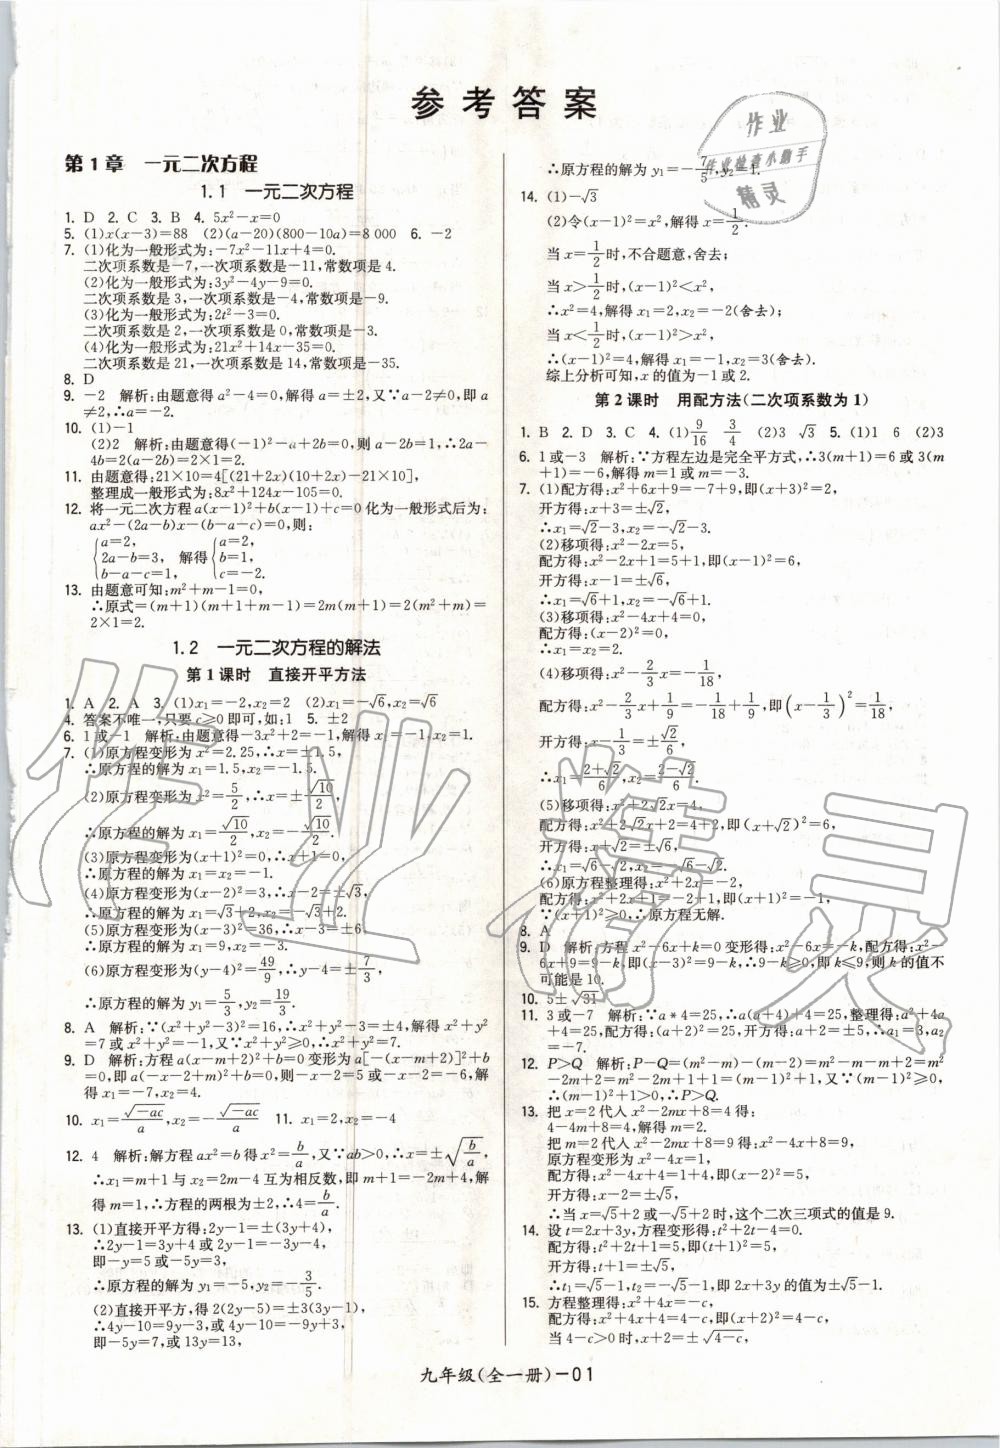 参考答案
作业
作业检查小助手
精灵
第1章 一元二次方程
1.1 一元二次方程
1. D 2. C 3. B 4. 5x²-x=0
5. (1)x(x-3)=88 (2)(a-20)(800-10a)=8 000 6. -2
7. (1)化为一般形式为:-7x²-11x+4=0.
二次项系数是-7,一次项系数是-11,常数项是4.
(2)化为一般形式为:3y²-4y-9=0.
二次项系数是3,一次项系数是-4,常数项是-9.
(3)化为一般形式为:2t²-3=0.
二次项系数是2,一次项系数是0,常数项是-3.
(4)化为一般形式为:21x²+14x-35=0.
二次项系数是21,一次项系数是14,常数项是-35.
8. D
9. -2 解析:由题意得a²-4=0,解得a=±2,又∵a-2≠0,即a
≠2,∴a=-2.
10. (1)-1
(2)2 解析:由题意得(-1)²-a+2b=0,则a-2b=1,∴2a-
4b=2(a-2b)=2×1=2.
11. 由题意得:21×10=4[(21+2x)(10+2x)-21×10],
整理成一般形式为:8x²+124x-105=0.
12. 将一元二次方程a(x-1)²+b(x-1)+c=0化为一般形式后为:
ax²-(2a-b)x-(b-a-c)=0,则:
{a=2, 2a-b=3, b-a-c=1, 解得{a=2, b=1, c=-2.
13. 由题意可知:m²+m-1=0,
∴原式=(m+1)(m+1+m-1)=2m(m+1)=2(m²+m)=
2×1=2.
1.2 一元二次方程的解法
第1课时 直接开平方法
1. A 2. A 3. (1)x₁=-2,x₂=2 (2)x₁=-√6,x₂=√6
4. 答案不唯一,只要c≥0即可,如:1 5. ±2
6. 1或-1 解析:由题意得-3x²+2=-1,解得x₁=-1,x₂=1.
7. (1)原方程变形为x²=2.25,∴x=±1.5,
∴原方程的解为x₁=1.5,x₂=-1.5.
(2)原方程变形为x²=5/2,∴x=±√10/2,
∴原方程的解为x₁=√10/2,x₂=-√10/2.
(3)原方程变形为(x+1)²=0,∴x+1=0,
∴原方程的解为x₁=x₂=-1.
(4)原方程变形为(x-2)²=3,∴x-2=±√3,
∴原方程的解为x₁=√3+2,x₂=-√3+2.
(5)原方程变形为(x-3)²=36,∴x-3=±6,
∴原方程的解为x₁=9,x₂=-3.
(6)原方程变形为(y-4)²=49/9,∴y-4=±7/3,
∴原方程的解为y₁=5/3,y₂=19/3.
8. A 解析:∵(x²+y²-3)²=16,∴x²+y²-3=±4,解得x²+y²
=7或x²+y²=-1,又∵x²+y²≥0,∴x²+y²=7.
9. D 解析:方程a(x-m+2)²+b=0变形为a[-(x-m+2)]²+b
=0,即a(-x-2+m)²+b=0,则-x-2=5或-x-2=-6,解
得x₁=-7,x₂=4.
10. x₁=√-ac/a,x₂=-√-ac/a 11. x₁=2,x₂=-4
12. 4 解析:解方程ax²=b得x²=b/a,又∵ab>0,∴x=±√(b/a),
∴x₁=m+1与x₂=2m-4互为相反数,即m+1=-2m+4,解
得m=1,∴方程的两根为±2,∴4=b/a.
13. (1)直接开平方得:2y-1=±(3y+4),
∴2y-1=3y+4或2y-1=-3y-4,
即-y=5或-5y=3,
∴原方程的解为y₁=-5,y₂=-3/5.
(2)直接开平方,得2(2y-5)=±3(3y-1),
∴4y-10=9y-3,或4y-10=-9y+3,
即-5y=7,或13y=13,
∴原方程的解为y₁=-7/5,y₂=1.
14. (1)-√3
(2)令(x-1)²=x²,解得x=1/2.
当x=1/2时,不合题意,舍去;
当x>1/2时,(x-1)²<x²,
∴x²=4,解得x₁=2,x₂=-2(舍去);
当x<1/2时,(x-1)²>x²,
∴(x-1)²=4,解得x₁=-1,x₂=3(舍去).
综上分析可知,x的值为-1或2.
第2课时 用配方法(二次项系数为1)
1. B 2. D 3. C 4. (1)9/16 3/4 (2)3 √3 5. (1)1 6 (2)3
6. 1或-3 解析:∵方程左边是完全平方式,∴3(m+1)=6或3(m
+1)=-6,解得m=1或m=-3.
7. (1)配方得:x²+6x+9=-7+9,即(x+3)²=2,
开方得:x+3=±√2,
∴x₁=√2-3,x₂=-√2-3.
(2)移项得:x²-2x=5,
配方得:x²-2x+1=5+1,即(x-1)²=6,
开方得:x-1=±√6,
∴x₁=√6+1,x₂=-√6+1.
(3)移项得:x²-4x+4=0,
配方得:(x-2)²=0,
∴x₁=x₂=2.
(4)移项得:x²-2/3x=-1/18,
配方得:x²-2/3x+1/9=-1/18+1/9,即(x-1/3)²=1/18,
开方得:x-1/3=±√2/6,
∴x₁=(2+√2)/6,x₂=(2-√2)/6.
(5)移项得:x²+2√2x=4,
配方得:x²+2√2x+2=4+2,即(x+√2)²=6,
开方得:x+√2=±√6,
∴x₁=√6-√2,x₂=-√6-√2.
(6)原方程整理得:x²+2x=-2,
配方得:x²+2x+1=-2+1,即(x+1)²=-1,
∵(x+1)²≥0,∴原方程无解.
8. A
9. D 解析:方程x²-6x+k=0变形得:x²-6x=-k,配方得:x²-
6x+9=9-k,即(x-3)²=9-k,∴9-k≥0,即k≤9,则k的值不
可能是10.
10. 5±√31
11. 3或-7 解析:∵a*4=25,∴a(a+4)+4=25,整理得:a²+4a
+4=25,配方得:(a+2)²=25,开方得:a+2=±5,∴a₁=3,a₂
=-7.
12. P>Q 解析:P-Q=(m²-m)-(m-2)=m²-m-m+2=m²
-2m+2=m²-2m+1+1=(m-1)²+1,又∵(m-1)²≥0,
∴(m-1)²+1>0,∴P>Q.
13. 把x=2代入x²-2mx+8=4得:
4-4m+8=4,解得m=2.
把m=2代入x²-2mx+8=9得:x²-4x+8=9,
原方程变形为x²-4x=1,
配方得:x²-4x+4=1+4,即(x-2)²=5,
开方得:x-2=±√5,
∴当x=√5+2或-√5+2时,这个二次三项式的值是9.
14. 设t=2x+3y,方程变形得:t²+2t-4=0.
配方得:t²+2t+1=5,即(t+1)²=5,
开方得:t+1=±√5,
∴t₁=√5-1,t₂=-√5-1,即2x+3y的值为±√5-1.
15. 方程整理得:x²+4x=-c,
配方得:x²+4x+4=4-c,即(x+2)²=4-c,
当4-c>0时,x+2=±√4-c,
作业精灵
九年级(全一册)-01